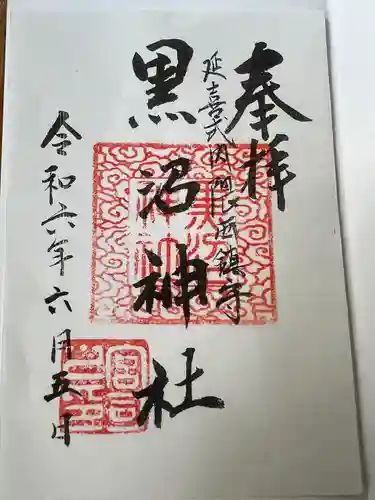 奉拝
延喜式内 関西鎮守
黒沼神社
令和六年六月五日